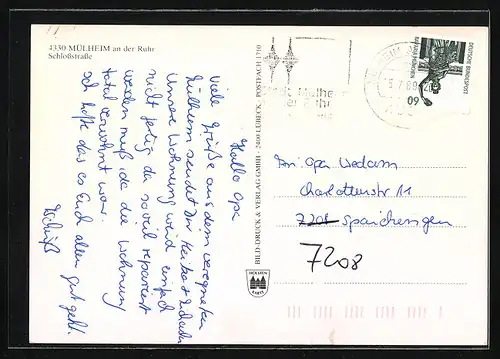 4330 MÜLHEIM an der Ruhr
Schloßstraße
Hallo Opa
viele Grüße aus dem verregneten
Mülheim sendet Dir Heike +
Unsere Wohnung wird einfach
nicht fertig da soviel repariert
werden muß, da die Wohnung
total verwohnt war.
Ich hoffe das es Euch allen gut geht.
Tschüß
BILD-DRUCK & VERLAG GMBH · 2400 LÜBECK · POSTFACH 1710
HOLSTEN
KARTE
DEUTSCHE BUNDESPOST
An Opa
Charlottenstr 11
7201 Spaichingen
7208